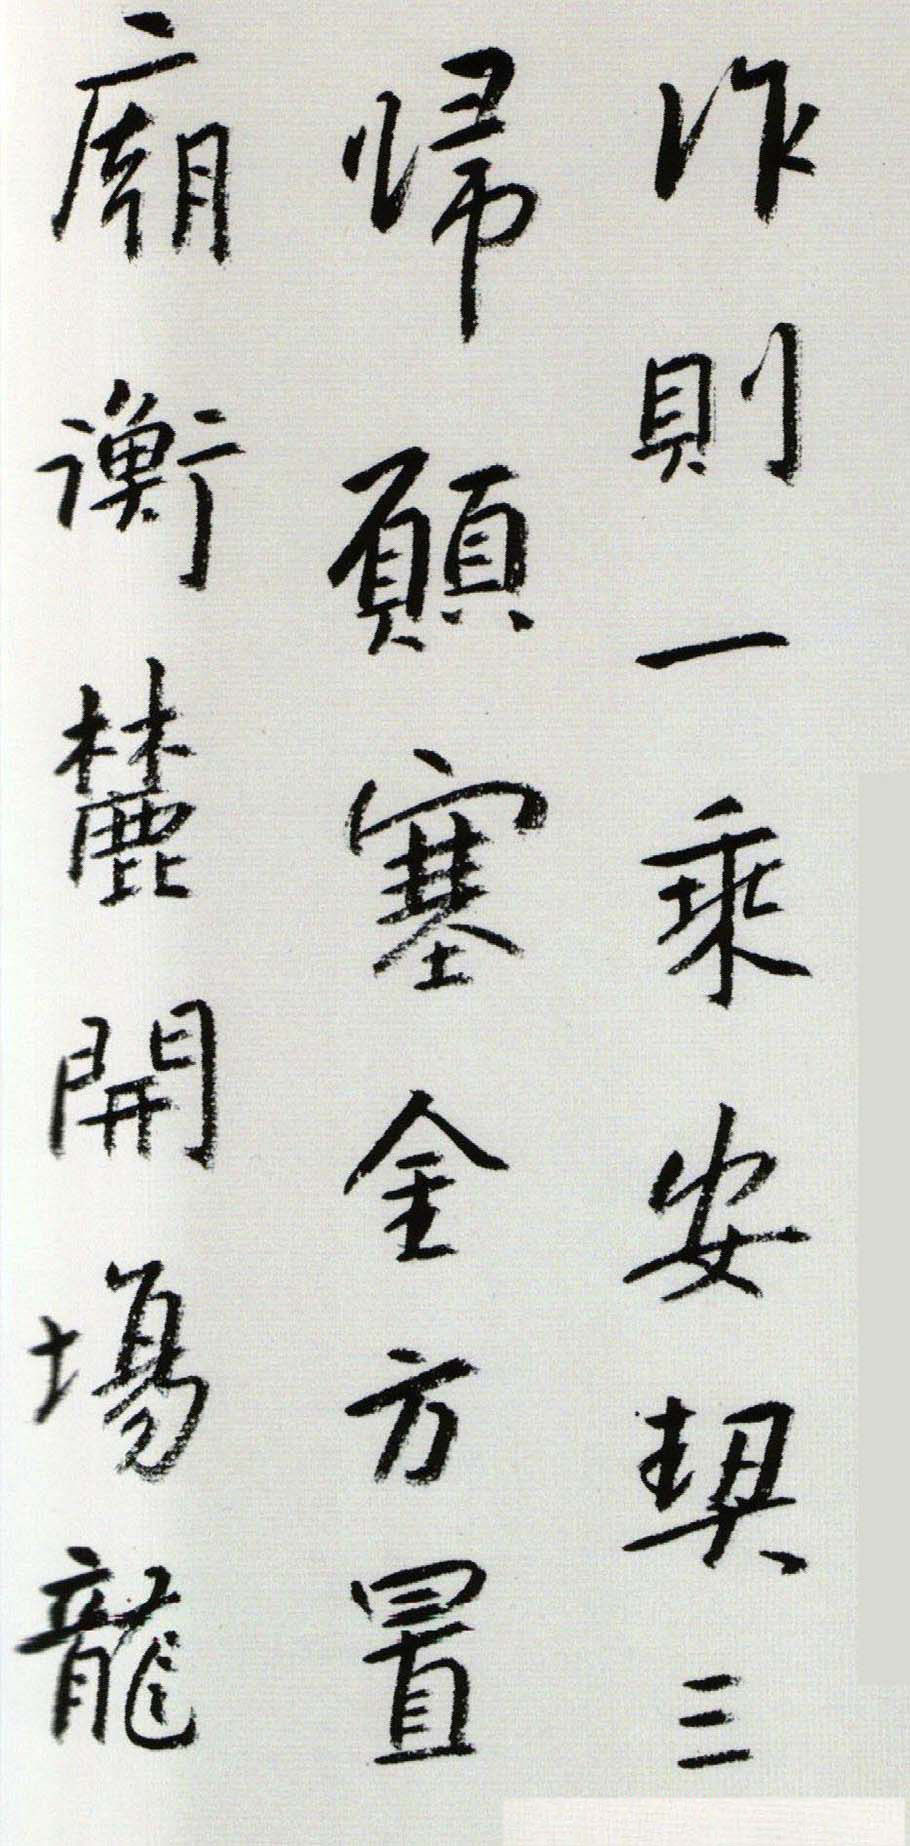 作則一乘安契三
帰願塞金方置
廟衡麓開場龍